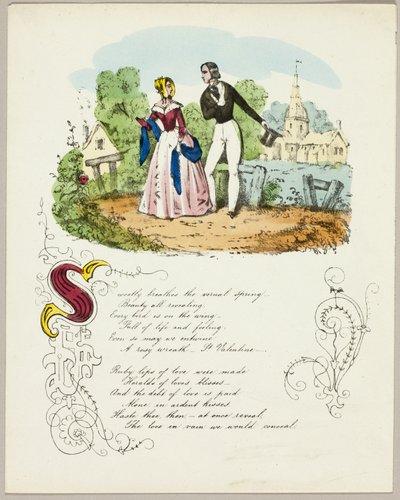 Sweetly breathes the vernal spring
Beauty all revealing.
Every bird is on the wing
Full of life and feeling.
Even so may we entwine
A rosy wreath – St Valentine –.
Ruby lips of love were made
Heralds of loves blisses
And the debt of love is paid
Alone in ardent kisses.
Haste thee then – at once reveal,
The love in vain we would conceal.